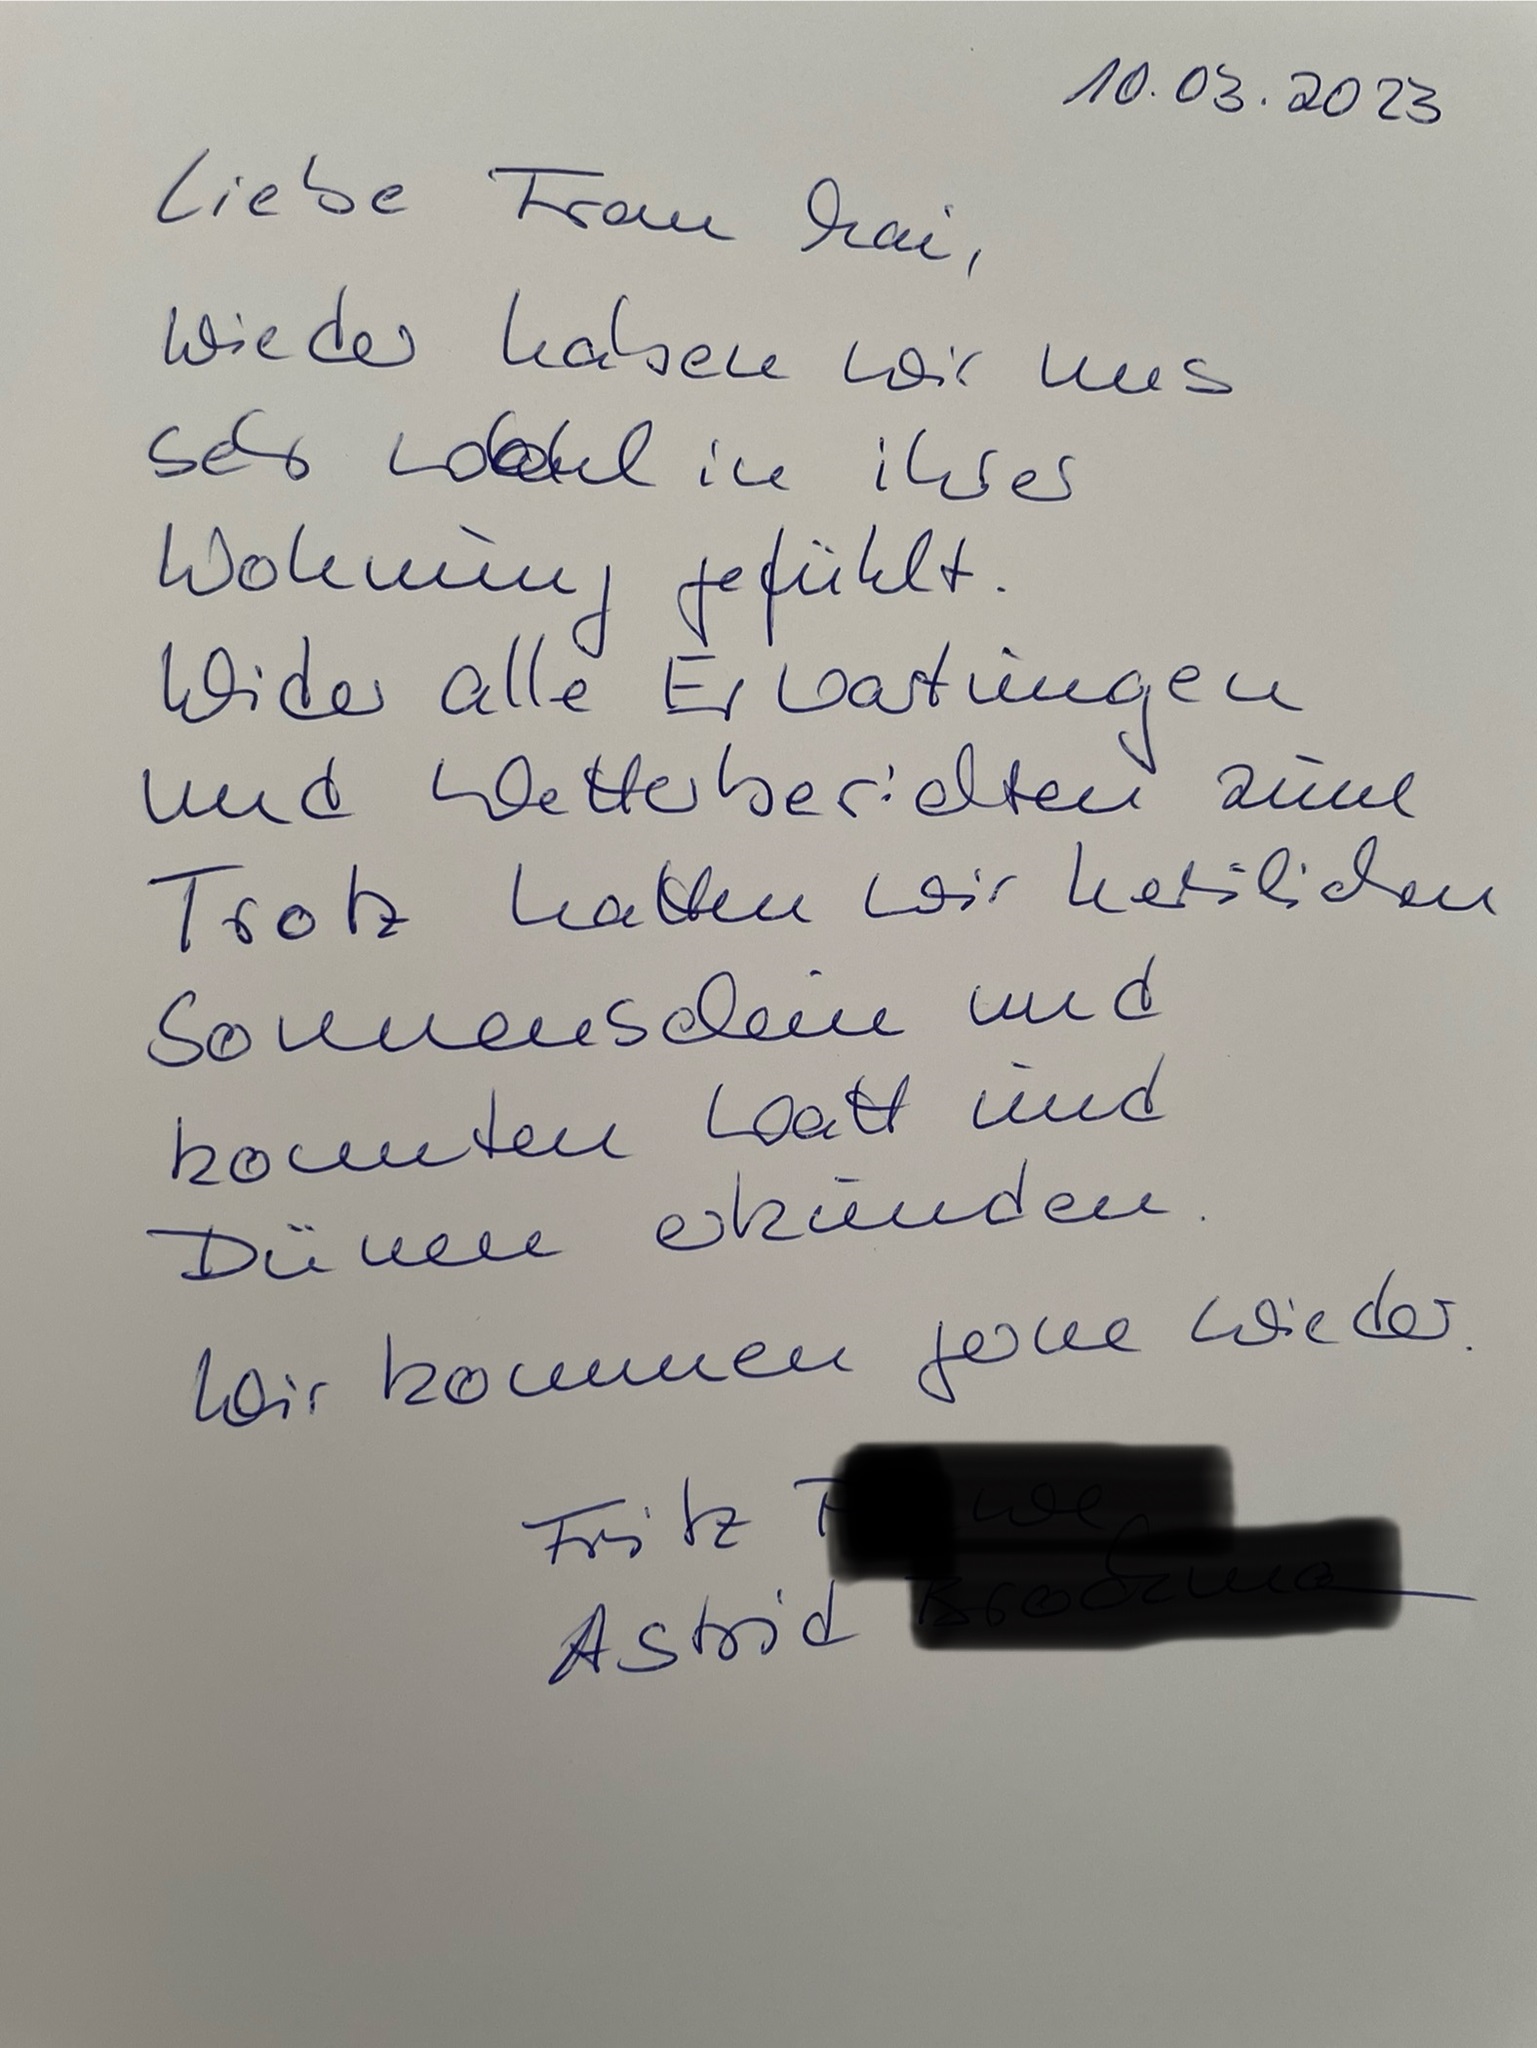 10.03.2023
Liebe Frau Mai,
Wieder haben wir uns
sehr wohl in ihrer
Wohnung gefühlt.
Wider alle Erwartungen
und Wetterberichten zum
Trotz hatten wir herrlichen
Sonnenschein und
konnten Watt und
Dünen erkunden.
Wir kommen gerne wieder.
Fritz
Astrid